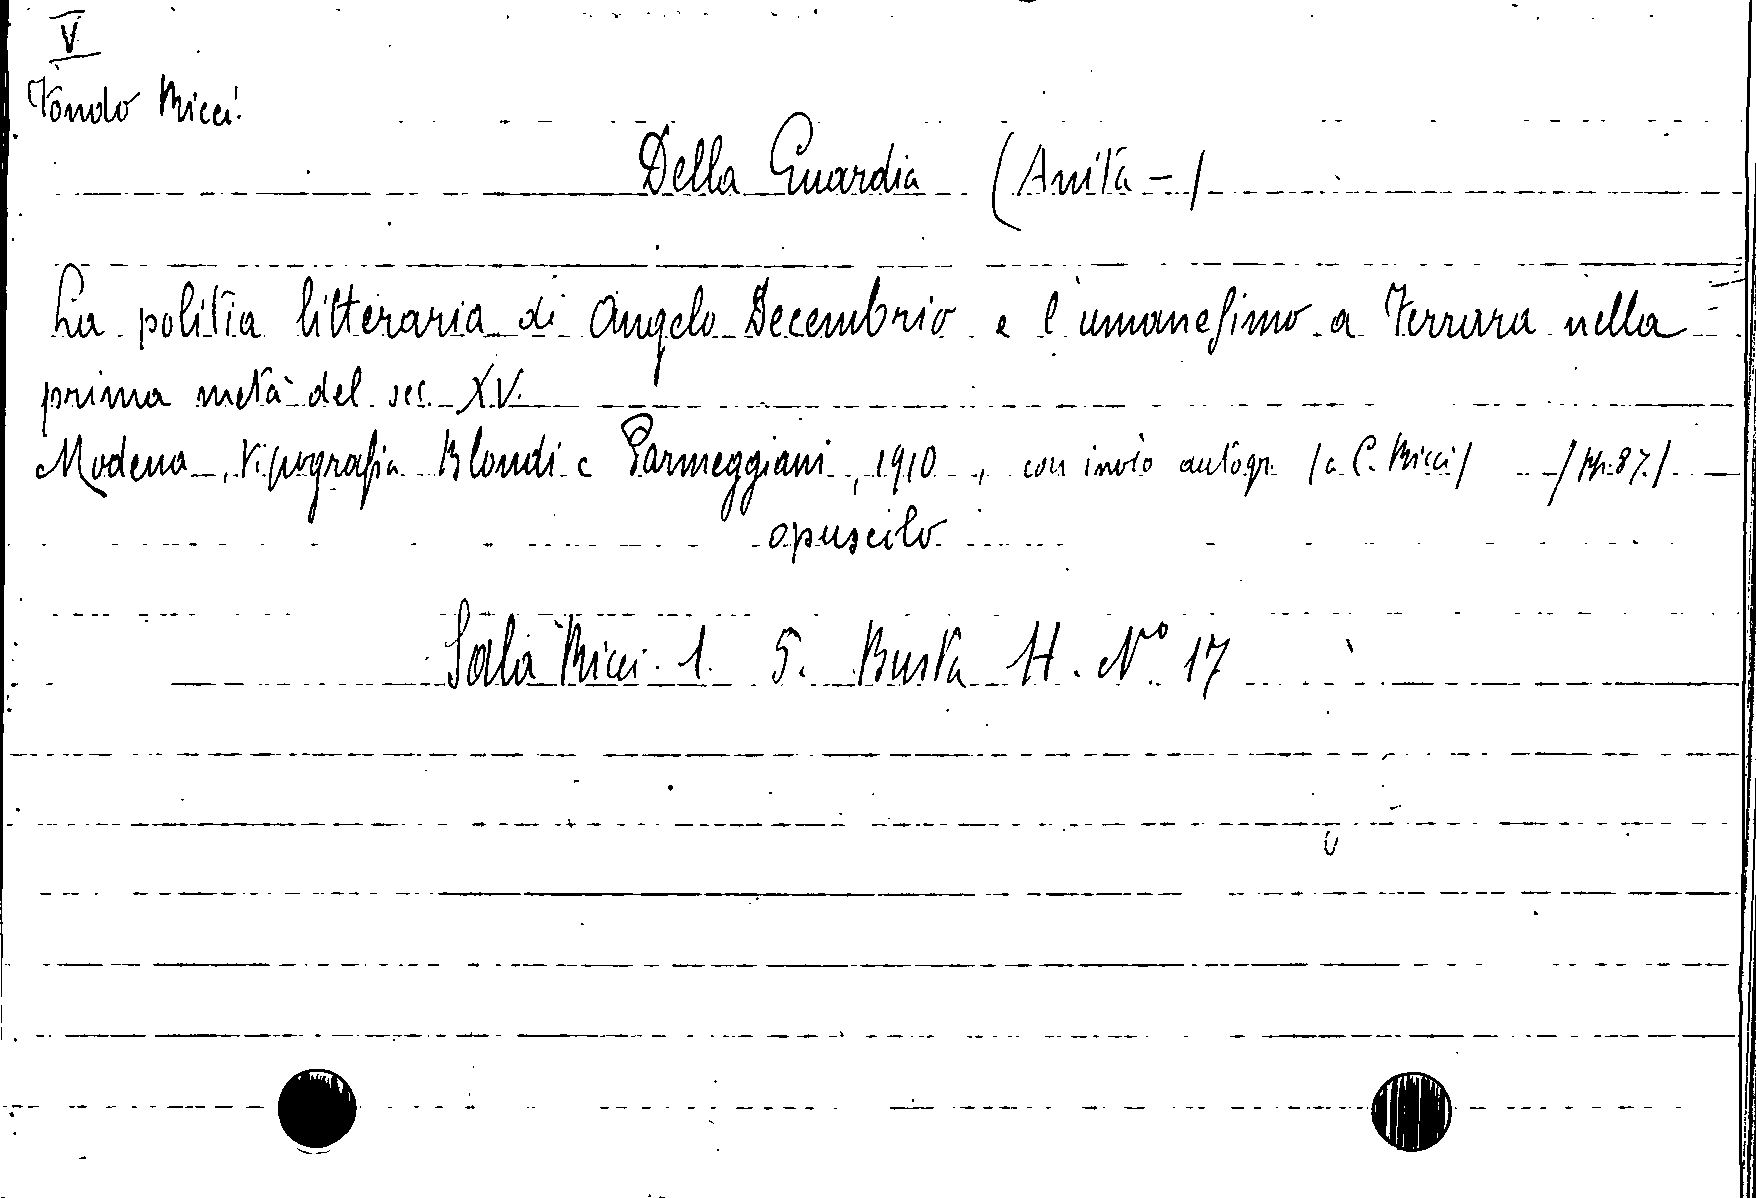 V
Fondo Ricci
Della Guardia (Anita -)
La politia litteraria di Angelo Decembrio e l'umanesimo a Ferrara nella
prima metà del sec. XV.
Modena, Tipografia Blondi e Parmeggiani, 1910, con invio autogr. (a C. Ricci) (pp. 87.)
opuscolo
Sala Ricci. 1. 5. Busta H. N° 17